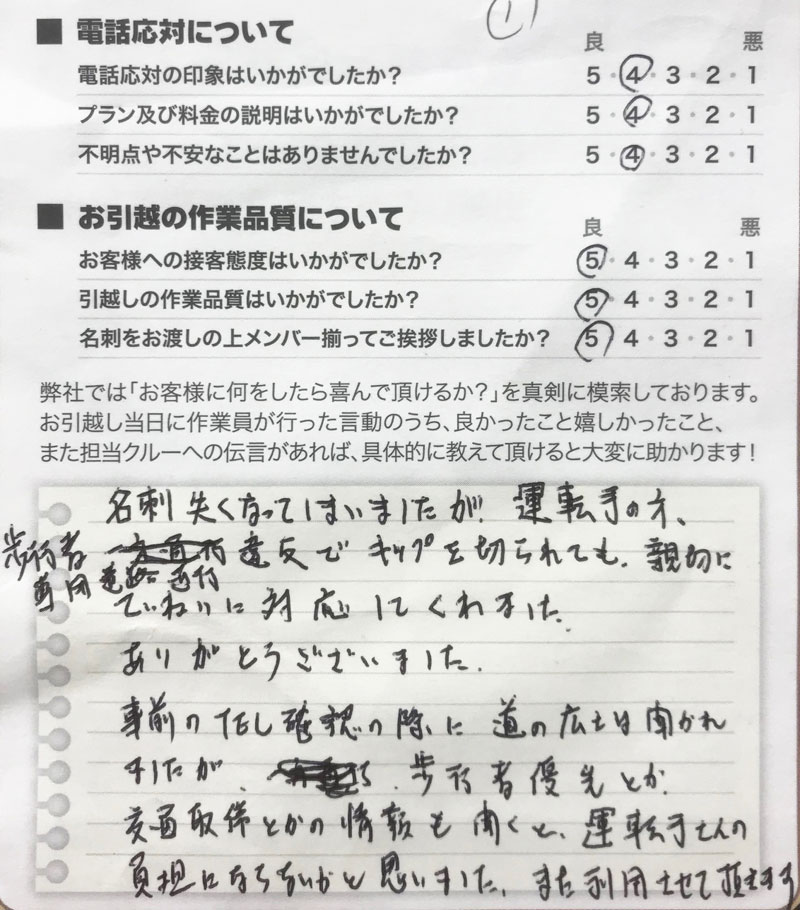 1
■ 電話応対について
良 悪
電話応対の印象はいかがでしたか? 5・4・3・2・1
プラン及び料金の説明はいかがでしたか? 5・4・3・2・1
不明点や不安なことはありませんでしたか? 5・4・3・2・1
■ お引越の作業品質について
良 悪
お客様への接客態度はいかがでしたか? 5・4・3・2・1
引越しの作業品質はいかがでしたか? 5・4・3・2・1
名刺をお渡しの上メンバー揃ってご挨拶しましたか? 5・4・3・2・1
弊社では「お客様に何をしたら喜んで頂けるか?」を真剣に模索しております。
お引越し当日に作業員が行った言動のうち、良かったこと嬉しかったこと、
また担当クルーへの伝言があれば、具体的に教えて頂けると大変に助かります!
名刺失くなってしまいましたが、運転手の方、
歩行者専用道路通行違反でキップを切られても、親切に
ていねいに対応してくれました。
ありがとうございました。
事前のTEL確認の際に道の広さは聞かれ
ましたが、歩行者優先とか、
交通取締とかの情報も聞くと、運転手さんの
負担にならないかと思いました。また利用させて頂きます